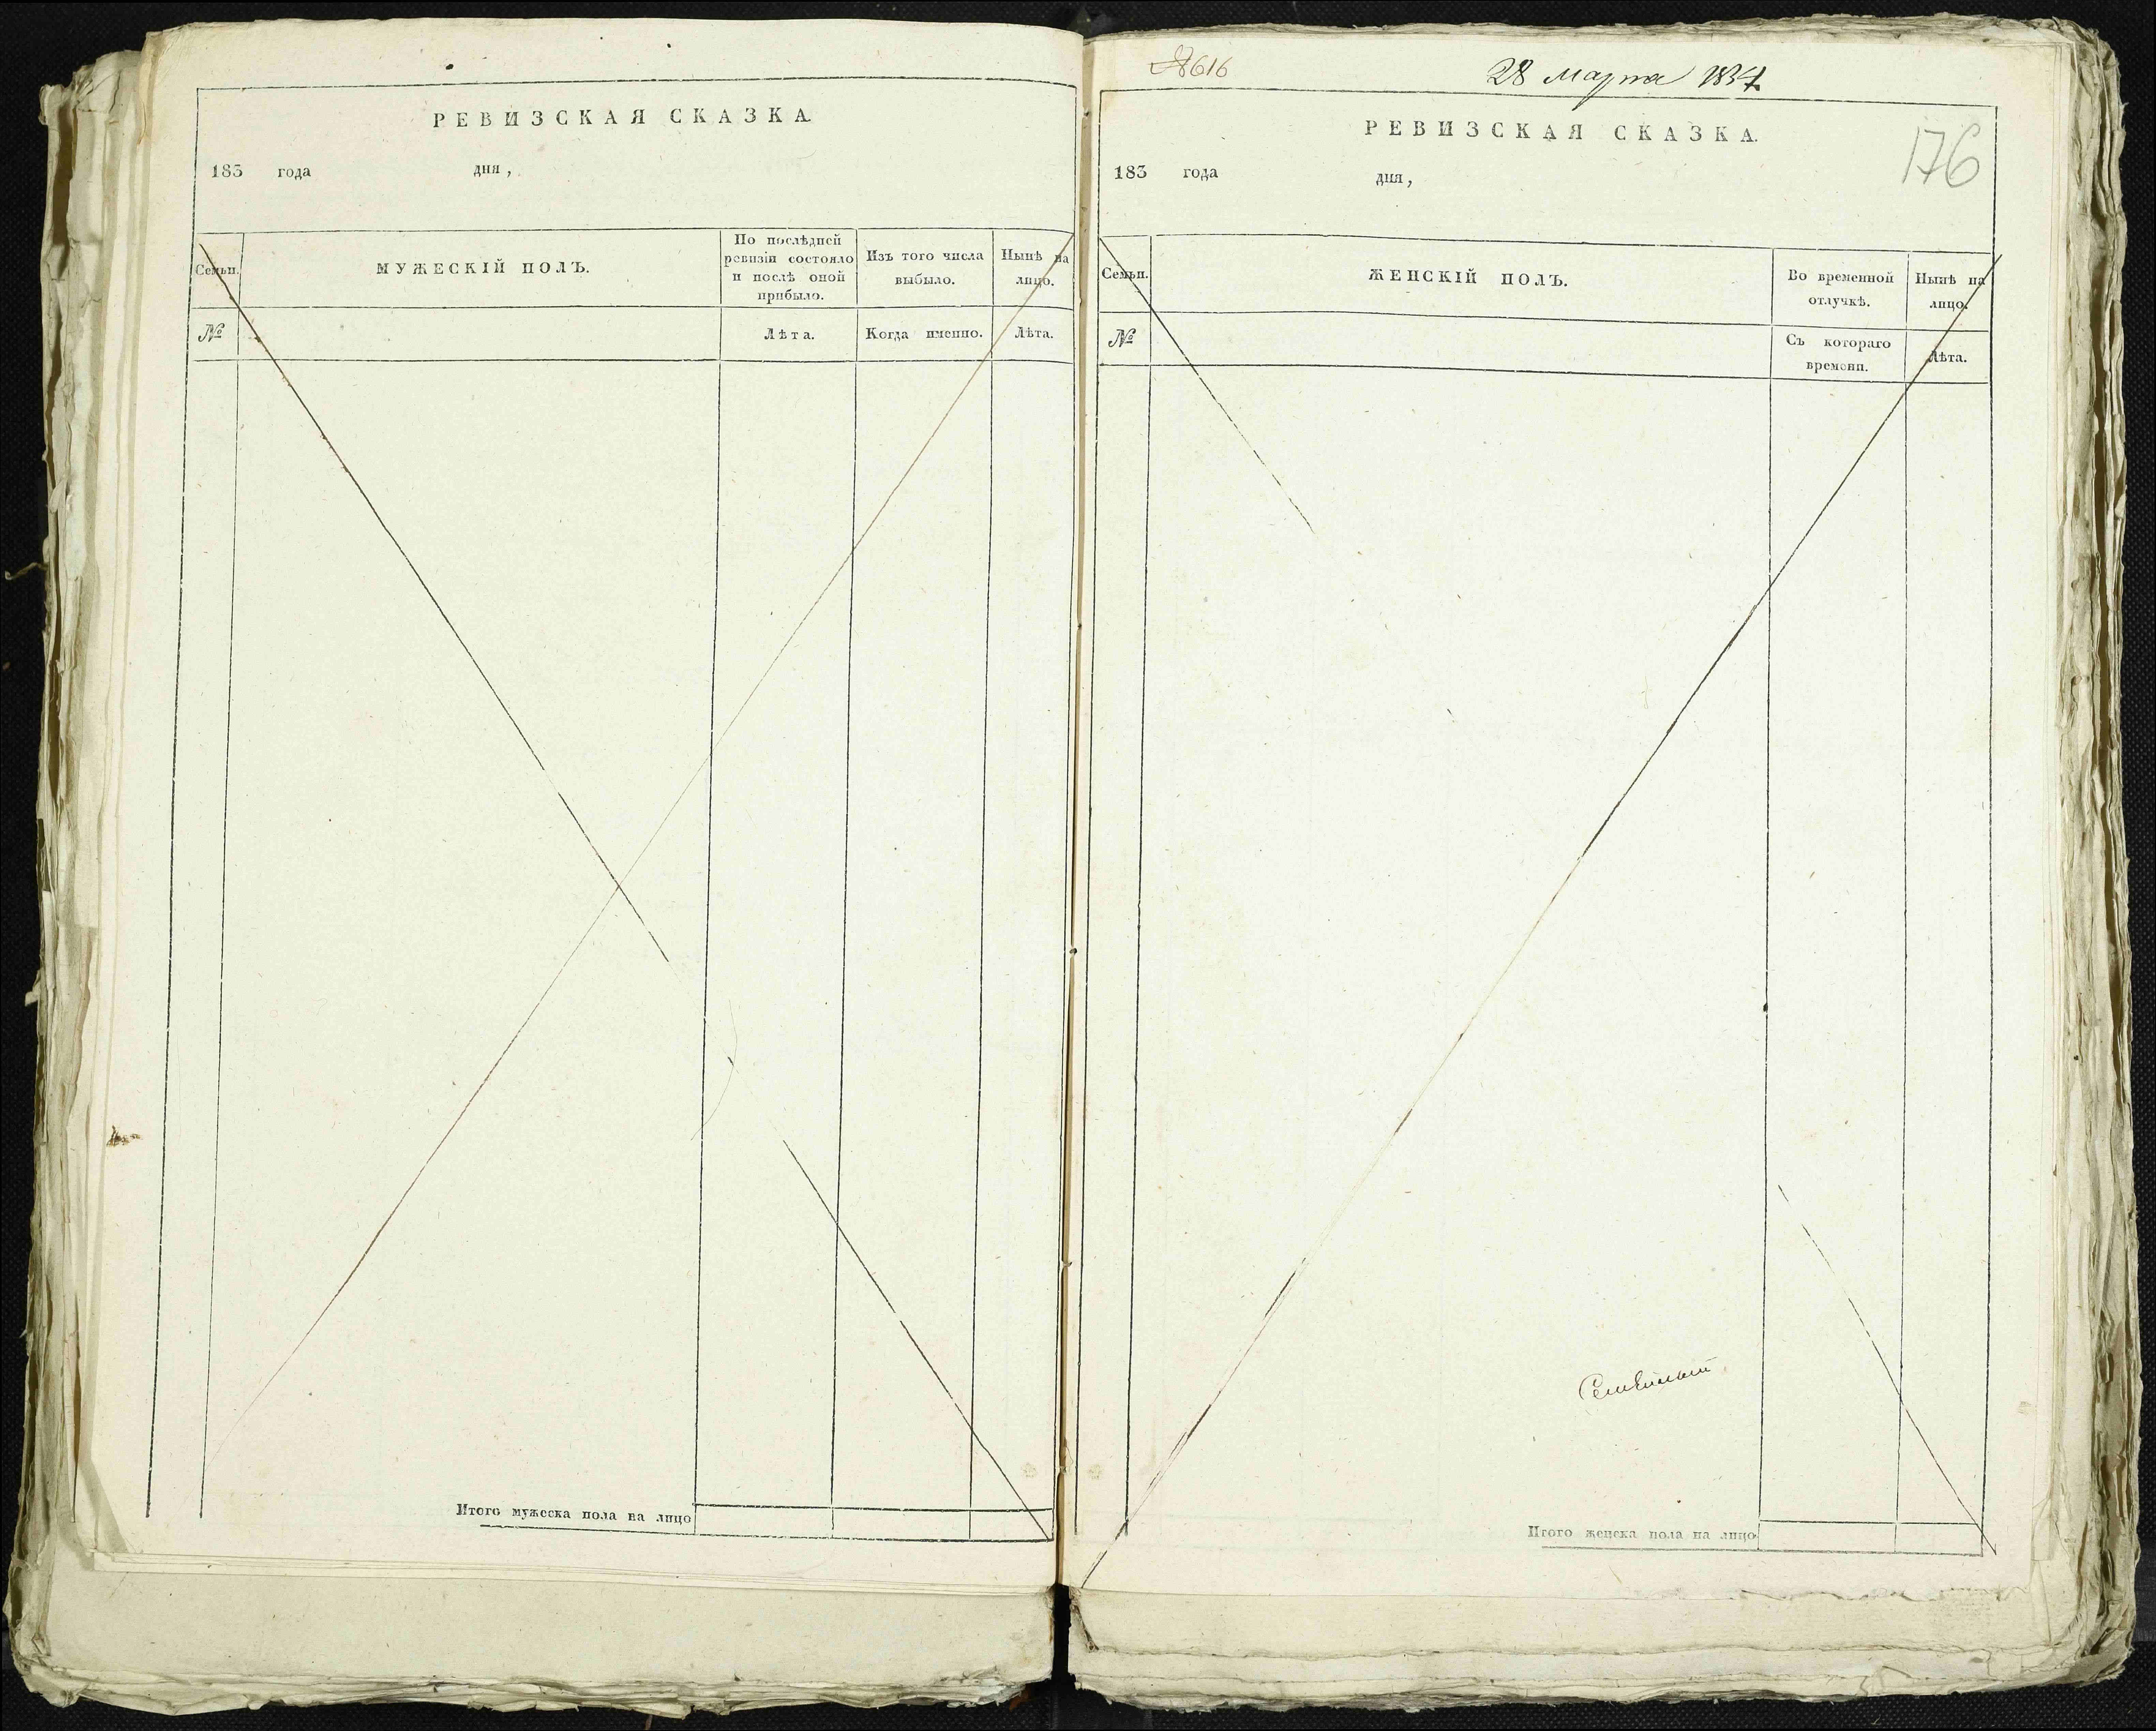 РЕВИЗСКАЯ СКАЗКА.
183 года дня,
Семьи.
МУЖЕСКІЙ ПОЛЪ.
По послѣдней ревизіи состояло и послѣ оной прибыло.
Изъ того числа выбыло.
Нынѣ на лицо.
№
Лѣта.
Когда именно.
Лѣта.
Итого мужеска пола на лицо
28 Марта 1834.
176
РЕВИЗСКАЯ СКАЗКА.
183 года дня,
Семьи.
ЖЕНСКІЙ ПОЛЪ.
Во временной отлучкѣ.
Нынѣ на лицо.
№
Съ котораго времени.
Лѣта.
Итого женска пола на лицо